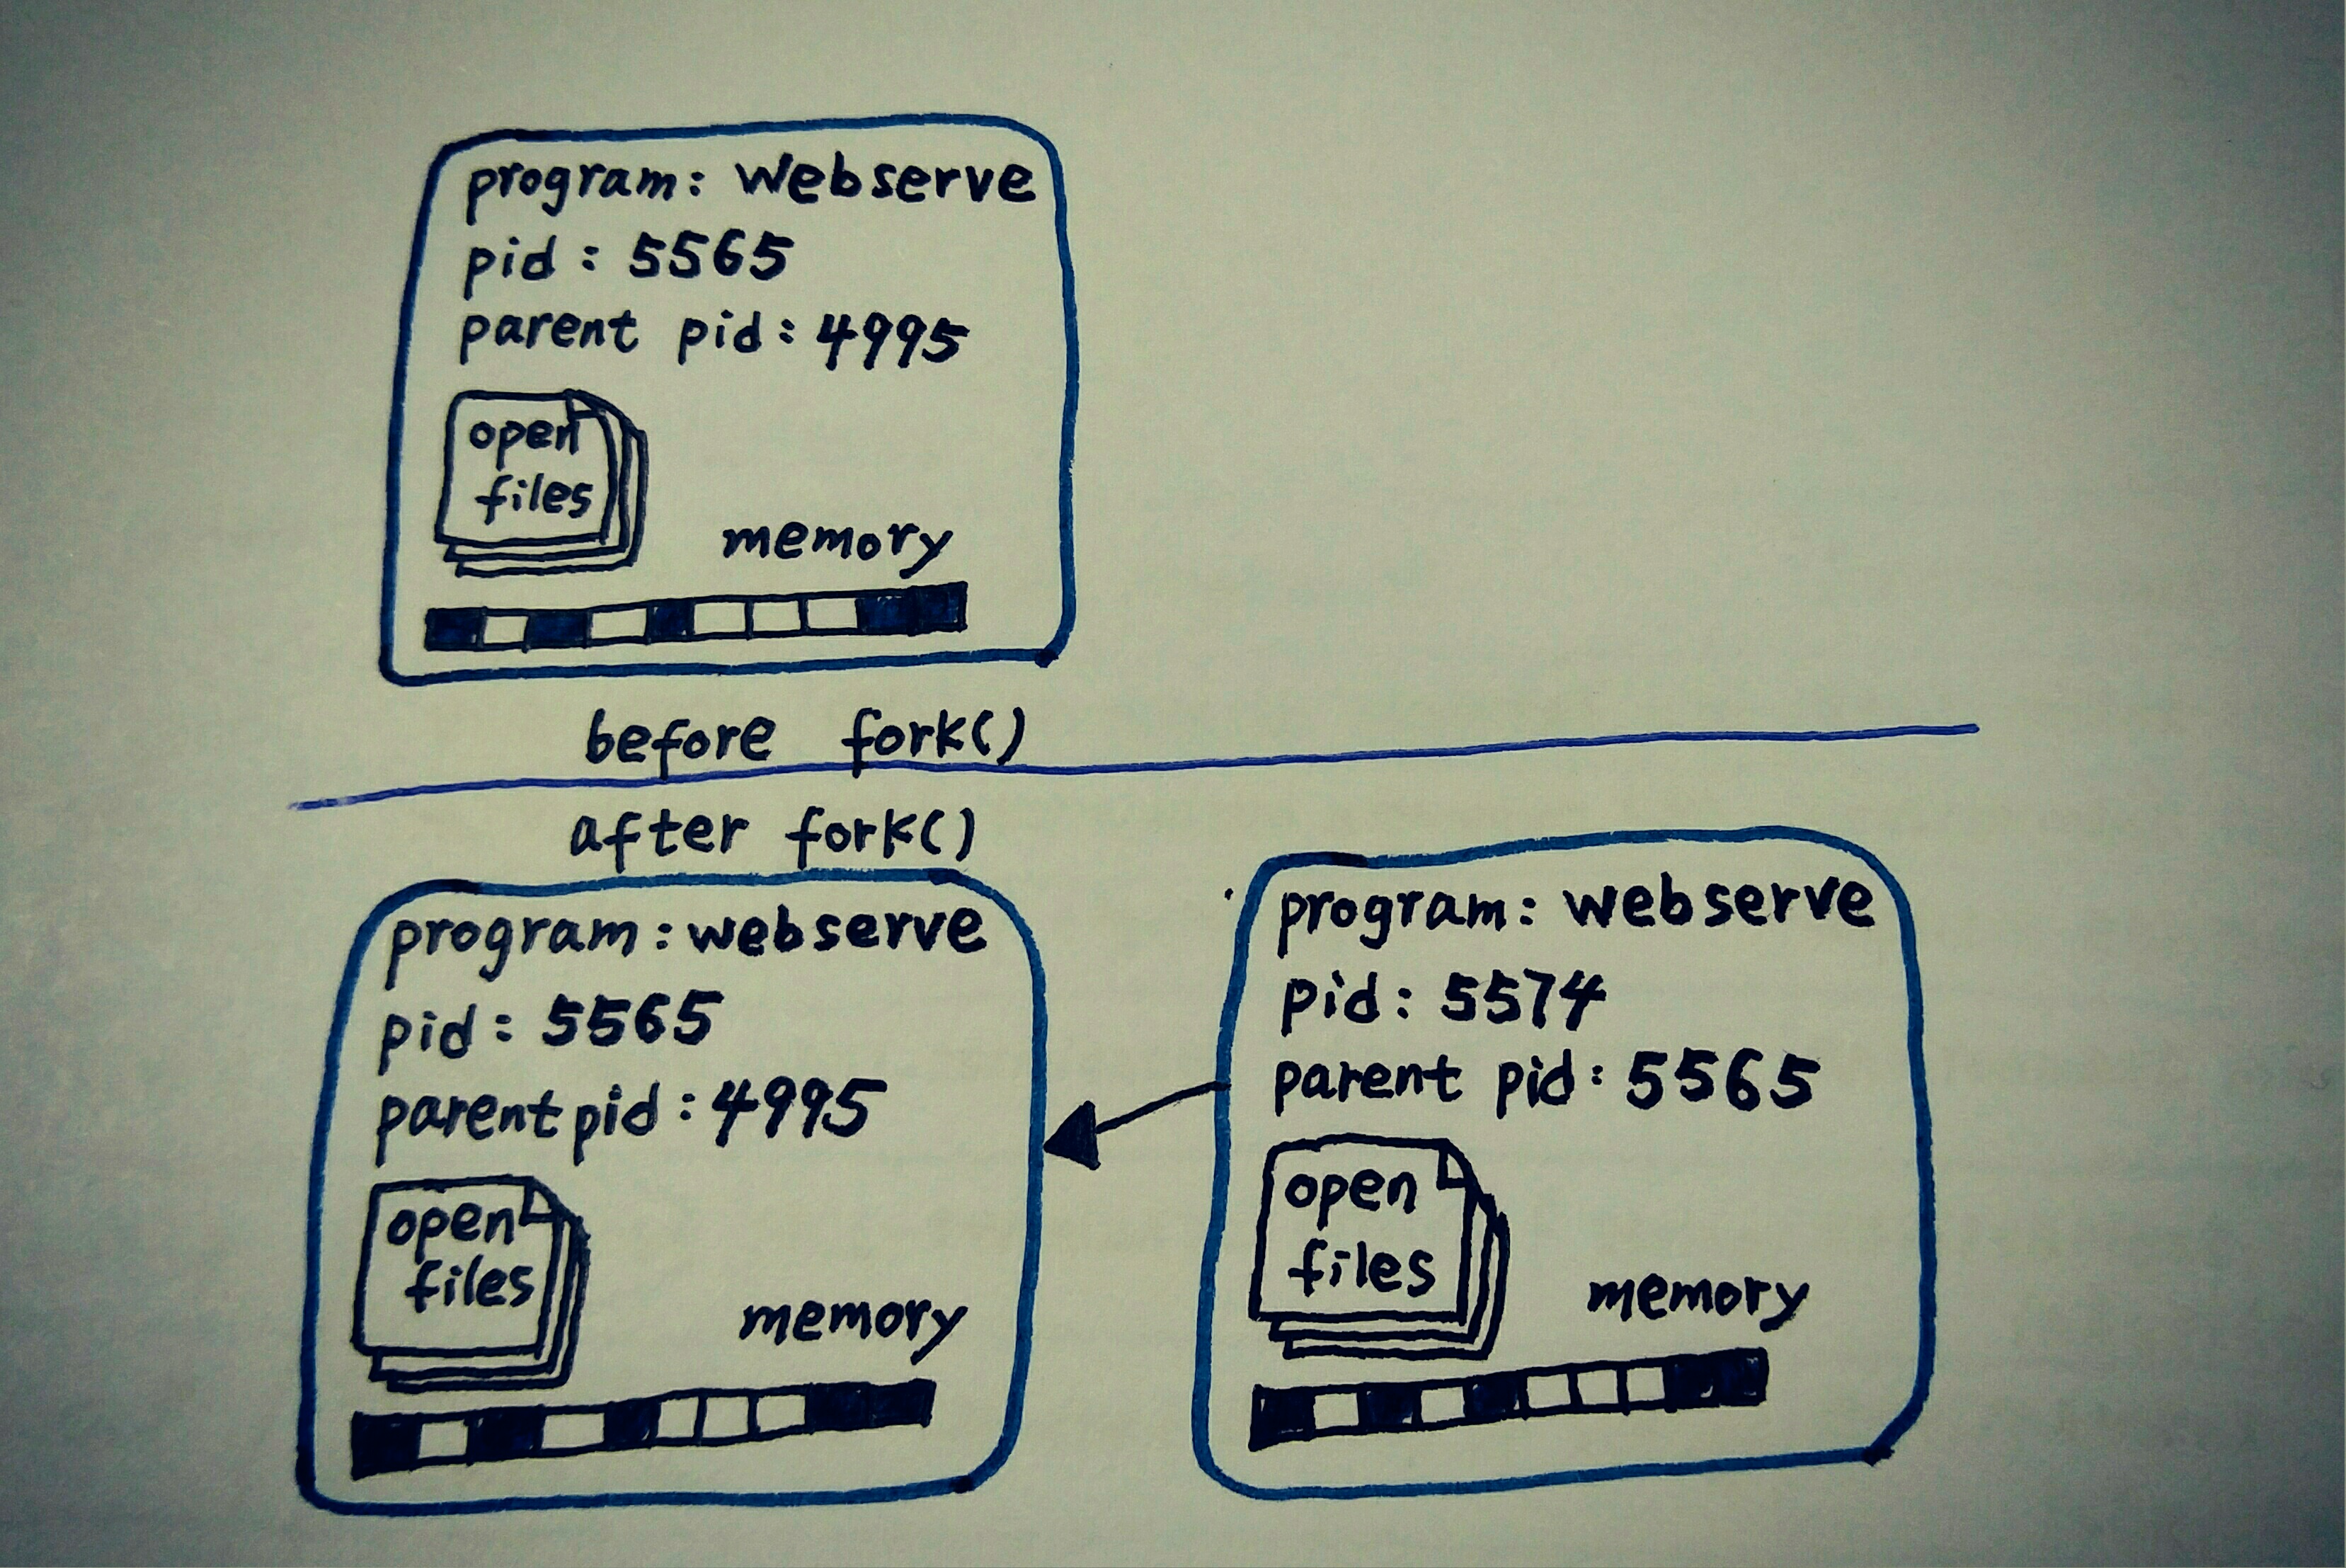 program: webserve
pid: 5565
parent pid: 4995
open
files
memory
before fork()
after fork()
program: webserve
pid: 5565
parent pid: 4995
open
files
memory
program: webserve
pid: 5574
parent pid: 5565
open
files
memory